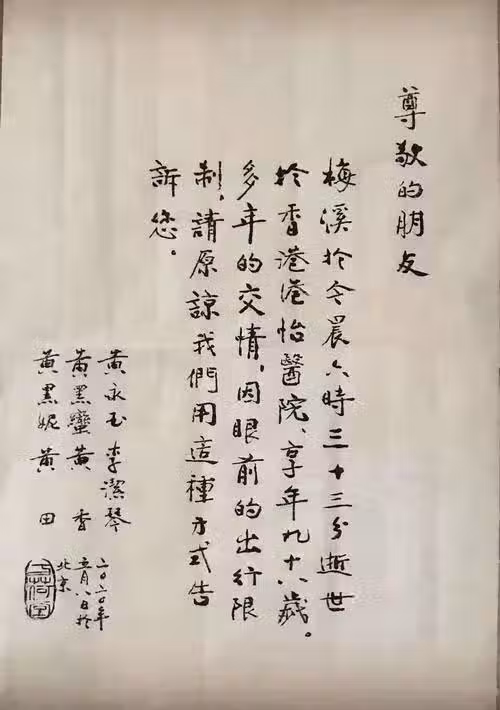 尊敬的朋友
梅溪於今晨六時三十三分逝世
於香港港怡醫院、享年九十八歲。
多年的交情,因眼前的出行限
制,請原諒我們用這種方式告
訴您。
黄永玉 李潔琴
黄黑蠻 黄香
黄黑妮 黄田
二〇二〇年
五月八日於
北京